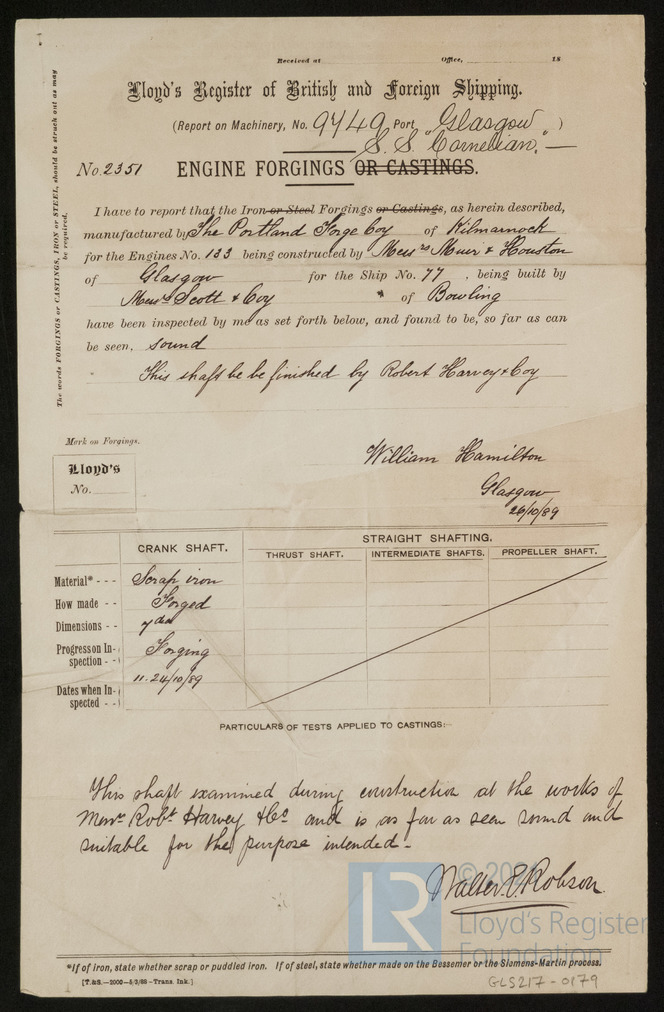 Received at Office, 18
Lloyd's Register of British and Foreign Shipping.
(Report on Machinery, No. 9749 Port "Glasgow )
S. S. Cornelian." —
No. 2351 ENGINE FORGINGS OR CASTINGS.
The words FORGINGS or CASTINGS, IRON or STEEL, should be struck out as may be required.
I have to report that the Iron or Steel Forgings or Castings, as herein described,
manufactured by The Portland Forge Coy of Kilmarnock
for the Engines No. 133 being constructed by Messrs Muir & Houston
of Glasgow for the Ship No. 77, being built by
Messrs Scott & Coy of Bowling
have been inspected by me as set forth below, and found to be, so far as can
be seen, sound
This shaft be be finished by Robert Harvey & Coy
Mark on Forgings.
Lloyd's
No.
William Hamilton
Glasgow
26/10/89
CRANK SHAFT. STRAIGHT SHAFTING.
THRUST SHAFT. INTERMEDIATE SHAFTS. PROPELLER SHAFT.
Material* - - - Scrap iron
How made - - Forged
Dimensions - - 7 dia
Progress on In- Forging
spection - -
Dates when In- 11. 24/10/89
spected - -
PARTICULARS OF TESTS APPLIED TO CASTINGS:—
This shaft examined during construction at the works of
Messrs Robt Harvey & Co and is as far as seen sound and
suitable for the purpose intended -
Walter E. Robson
LR
Lloyd's Register
Foundation
*If of iron, state whether scrap or puddled iron. If of steel, state whether made on the Bessemer or the Siemens-Martin process.
[T.&S.—2000—5/3/88—Trans. Ink.]
GLS217-0179